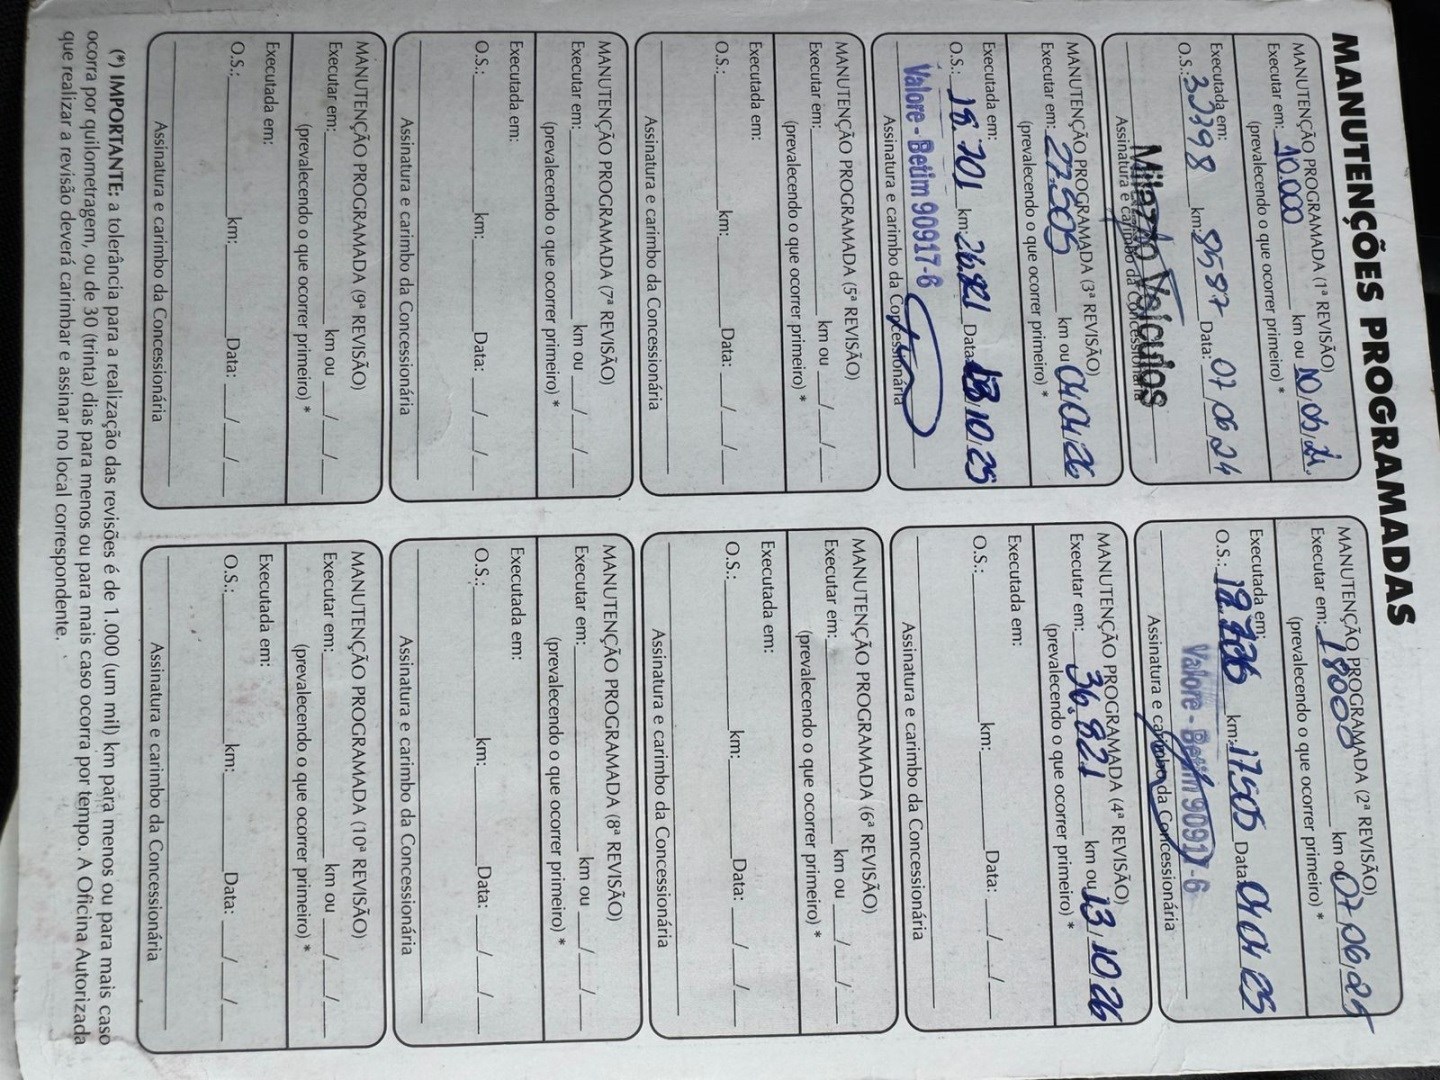 MANUTENÇÕES PROGRAMADAS
MANUTENÇÃO PROGRAMADA (1ª REVISÃO)
Executar em: 10.000 km ou 10/05/24
(prevalecendo o que ocorrer primeiro) *
Executada em:
O.S.: 33398 km: 8587 Data: 07/06/24
Milazzo Veículos
Assinatura e carimbo da Concessionária
MANUTENÇÃO PROGRAMADA (2ª REVISÃO)
Executar em: 18000 km ou 07/06/25
(prevalecendo o que ocorrer primeiro) *
Executada em:
O.S.: km: 17505 Data: 04/01/25
Valore - Betim 90917-6
Assinatura e carimbo da Concessionária
MANUTENÇÃO PROGRAMADA (3ª REVISÃO)
Executar em: 27.505 km ou 04/01/26
(prevalecendo o que ocorrer primeiro) *
Executada em:
O.S.: 19.701 km: 26.821 Data: 13/10/25
Valore - Betim 90917-6
Assinatura e carimbo da Concessionária
MANUTENÇÃO PROGRAMADA (4ª REVISÃO)
Executar em: 36.821 km ou 13/10/26
(prevalecendo o que ocorrer primeiro) *
Executada em:
O.S.: km: Data: / /
Assinatura e carimbo da Concessionária
MANUTENÇÃO PROGRAMADA (5ª REVISÃO)
Executar em: km ou / /
(prevalecendo o que ocorrer primeiro) *
Executada em:
O.S.: km: Data: / /
Assinatura e carimbo da Concessionária
MANUTENÇÃO PROGRAMADA (6ª REVISÃO)
Executar em: km ou / /
(prevalecendo o que ocorrer primeiro) *
Executada em:
O.S.: km: Data: / /
Assinatura e carimbo da Concessionária
MANUTENÇÃO PROGRAMADA (7ª REVISÃO)
Executar em: km ou / /
(prevalecendo o que ocorrer primeiro) *
Executada em:
O.S.: km: Data: / /
Assinatura e carimbo da Concessionária
MANUTENÇÃO PROGRAMADA (8ª REVISÃO)
Executar em: km ou / /
(prevalecendo o que ocorrer primeiro) *
Executada em:
O.S.: km: Data: / /
Assinatura e carimbo da Concessionária
MANUTENÇÃO PROGRAMADA (9ª REVISÃO)
Executar em: km ou / /
(prevalecendo o que ocorrer primeiro) *
Executada em:
O.S.: km: Data: / /
Assinatura e carimbo da Concessionária
MANUTENÇÃO PROGRAMADA (10ª REVISÃO)
Executar em: km ou / /
(prevalecendo o que ocorrer primeiro) *
Executada em:
O.S.: km: Data: / /
Assinatura e carimbo da Concessionária
(*) IMPORTANTE: a tolerância para a realização das revisões é de 1.000 (um mil) km para menos ou para mais caso
ocorra por quilometragem, ou de 30 (trinta) dias para menos ou para mais caso ocorra por tempo. A Oficina Autorizada
que realizar a revisão deverá carimbar e assinar no local correspondente.